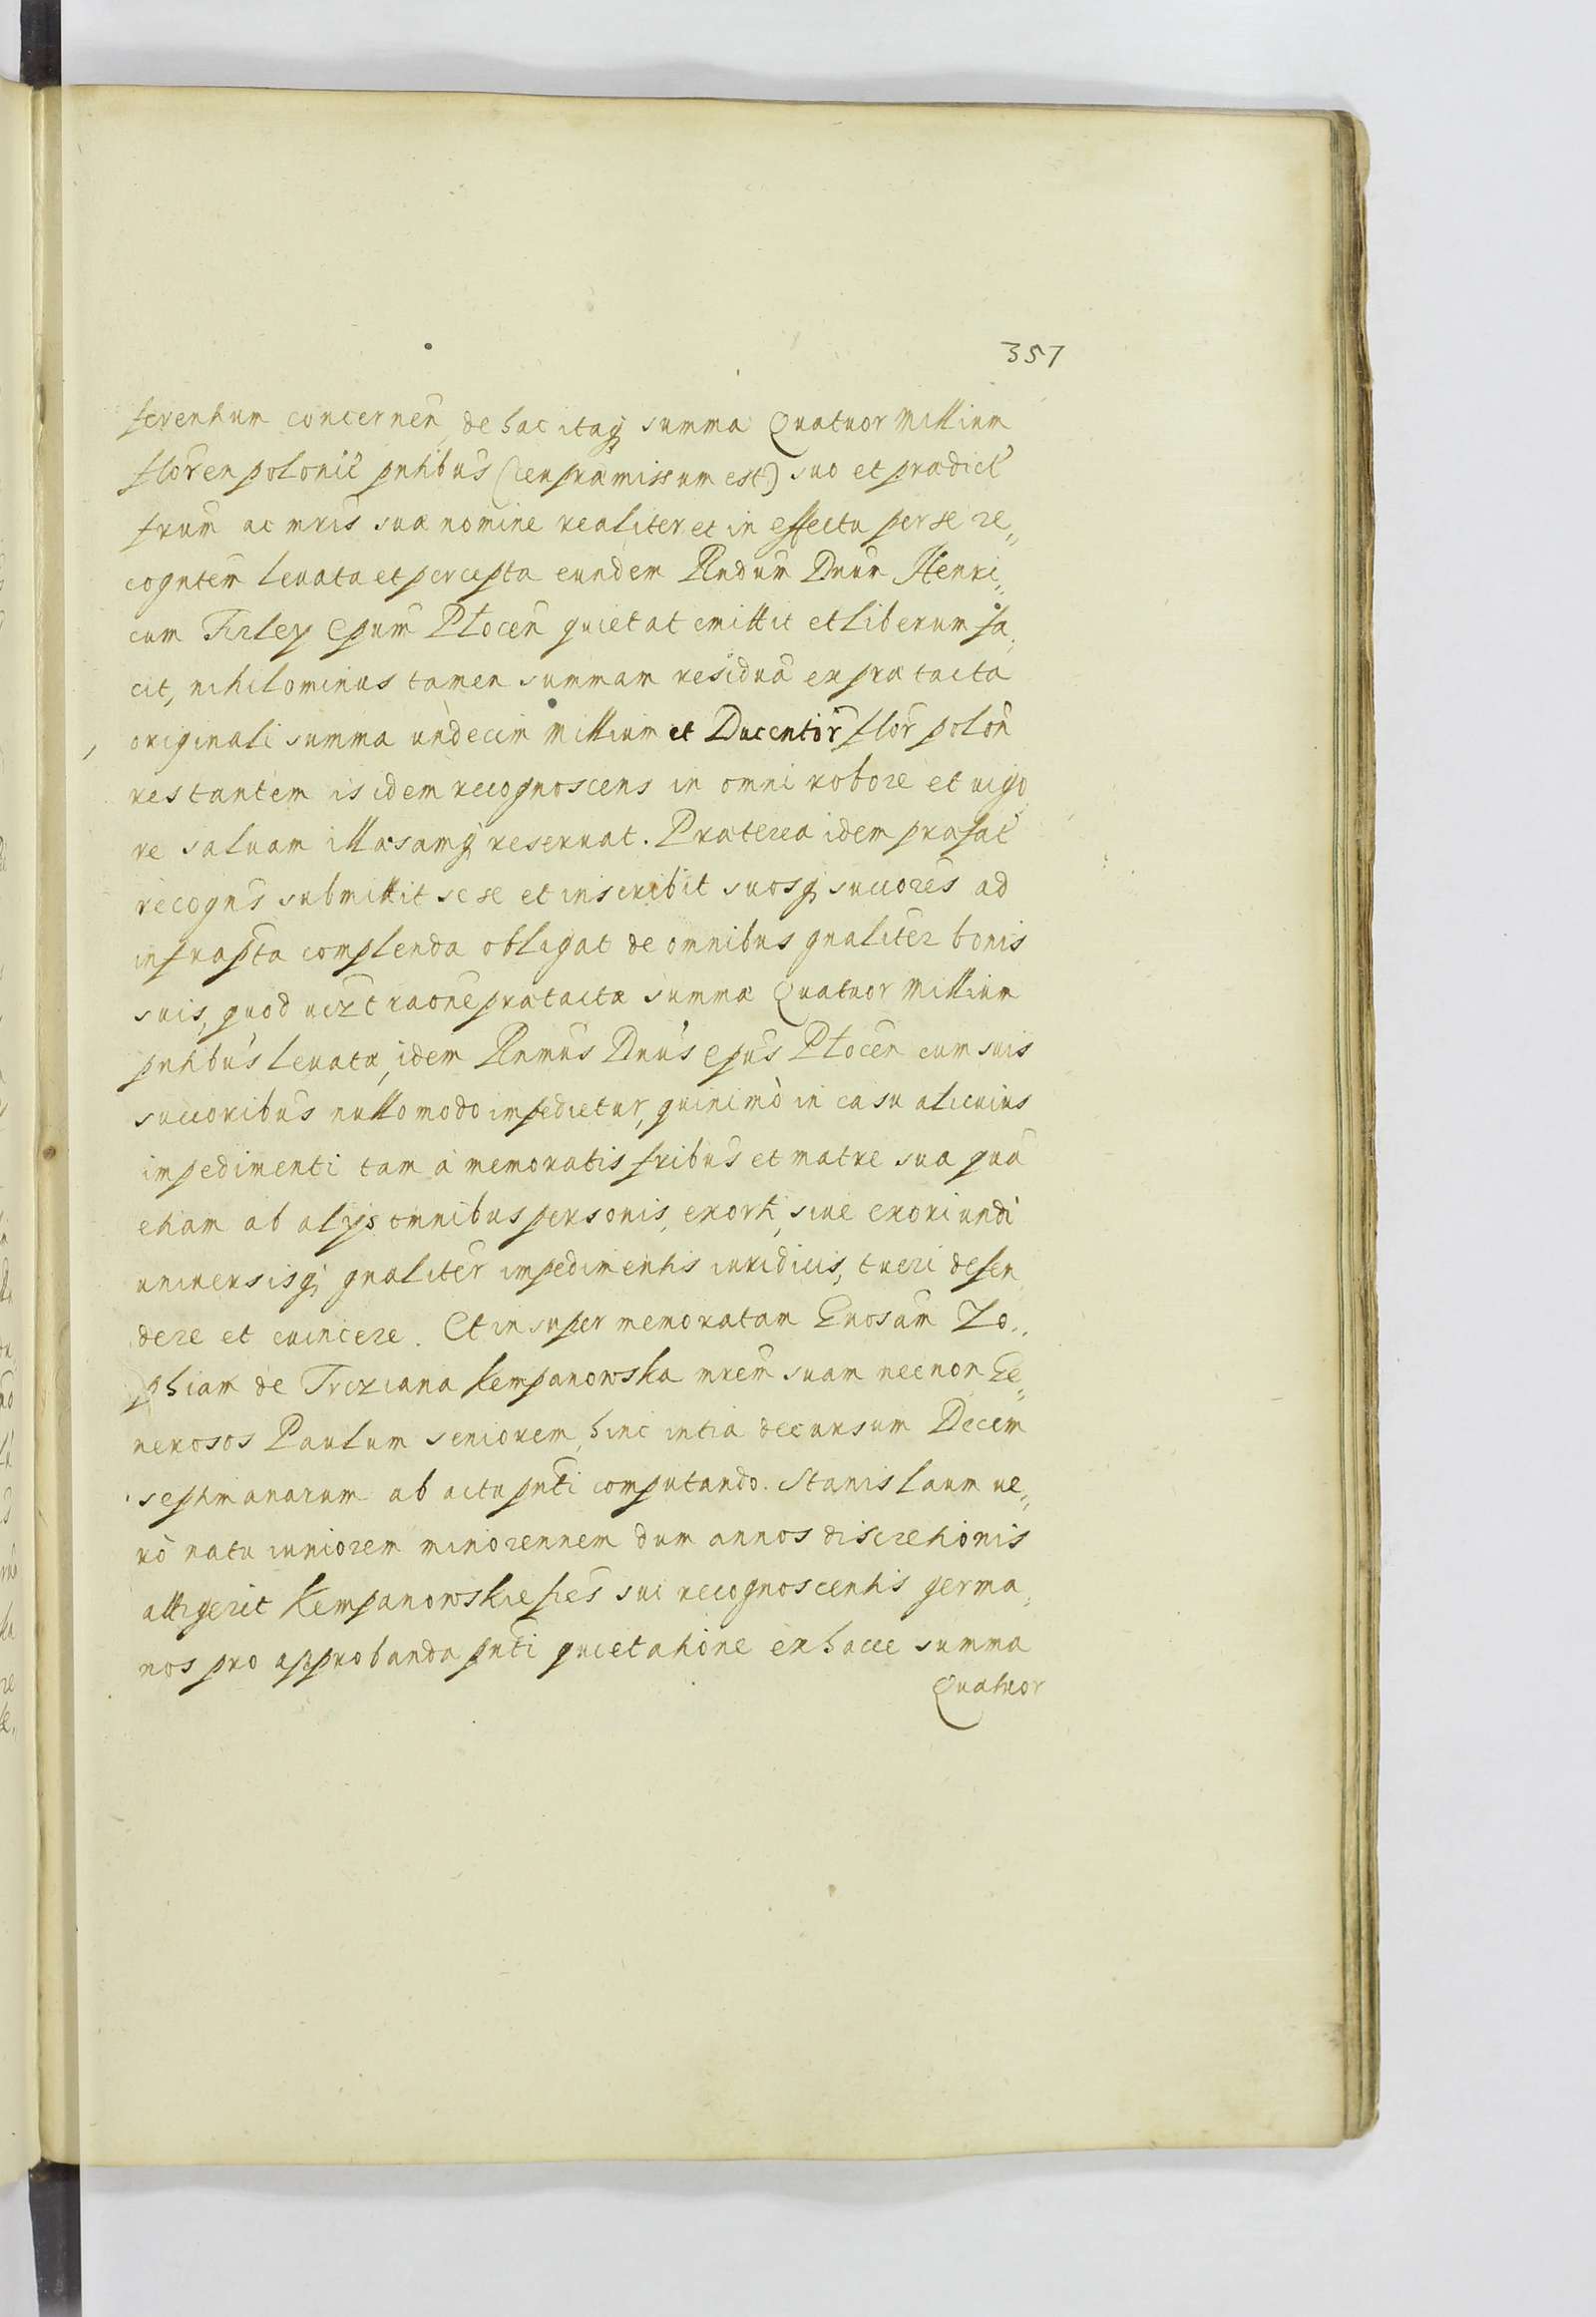 357
ferentium concerneñ, de hac itaq; summa Quatuor Millium
floreñ polonič pntibus (ceu præmissum est) suo et prædict
frum ac mris suæ nomine realiter et in effectu per se re„
cogntem leuata et percepta eundem Rndum Dnum Henri„
cum Firley Epum Plocen quietat emittit et liberum fa„
cit, nihilominus tamen summam residuã ex prætacta
originali summa undecim Millium et Ducentor̃ flor̃ polon̄
restantem is idem recognoscens in omni robore et uigo
re saluam illæsamq; reseruat. Præterea idem præfat
recogns submittit sese et inscribit suosq; succores ad
infrapta complenda obligat de omnibus gnaliter bonis
suis, quod uizt raone prætactæ summæ Quatuor Millium
pntibus leuatæ, idem Rnmus Dnus Epus Plocen cum suis
succoribus nullo modo impedietur, quinimò in casu alicuius
impedimenti tam à memoratis fribus et matre sua quã
etiam ab alijs omnibus personis, exorti, siue exoriundi
uniuersisq; gnaliter impedimentis iuridicis, tueri defen
dere et euincere. Et insuper memoratam Gnosam Zo„
phiam de Trczciana Kempanowska mrem suam necnon Ge„
nerosos Paulum seniorem, hinc intra decursum Decem
septimanarum ab actu pnti computando. Stanislaum ue„
rò natu iuniorem minorennem dum annos discretionis
attigerit Kempanowskie fres sui recognoscentis germa„
nos pro approbanda pnti quietatione ex hacce summa
Quatuor